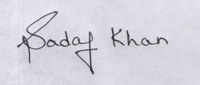 Sadaf Khan